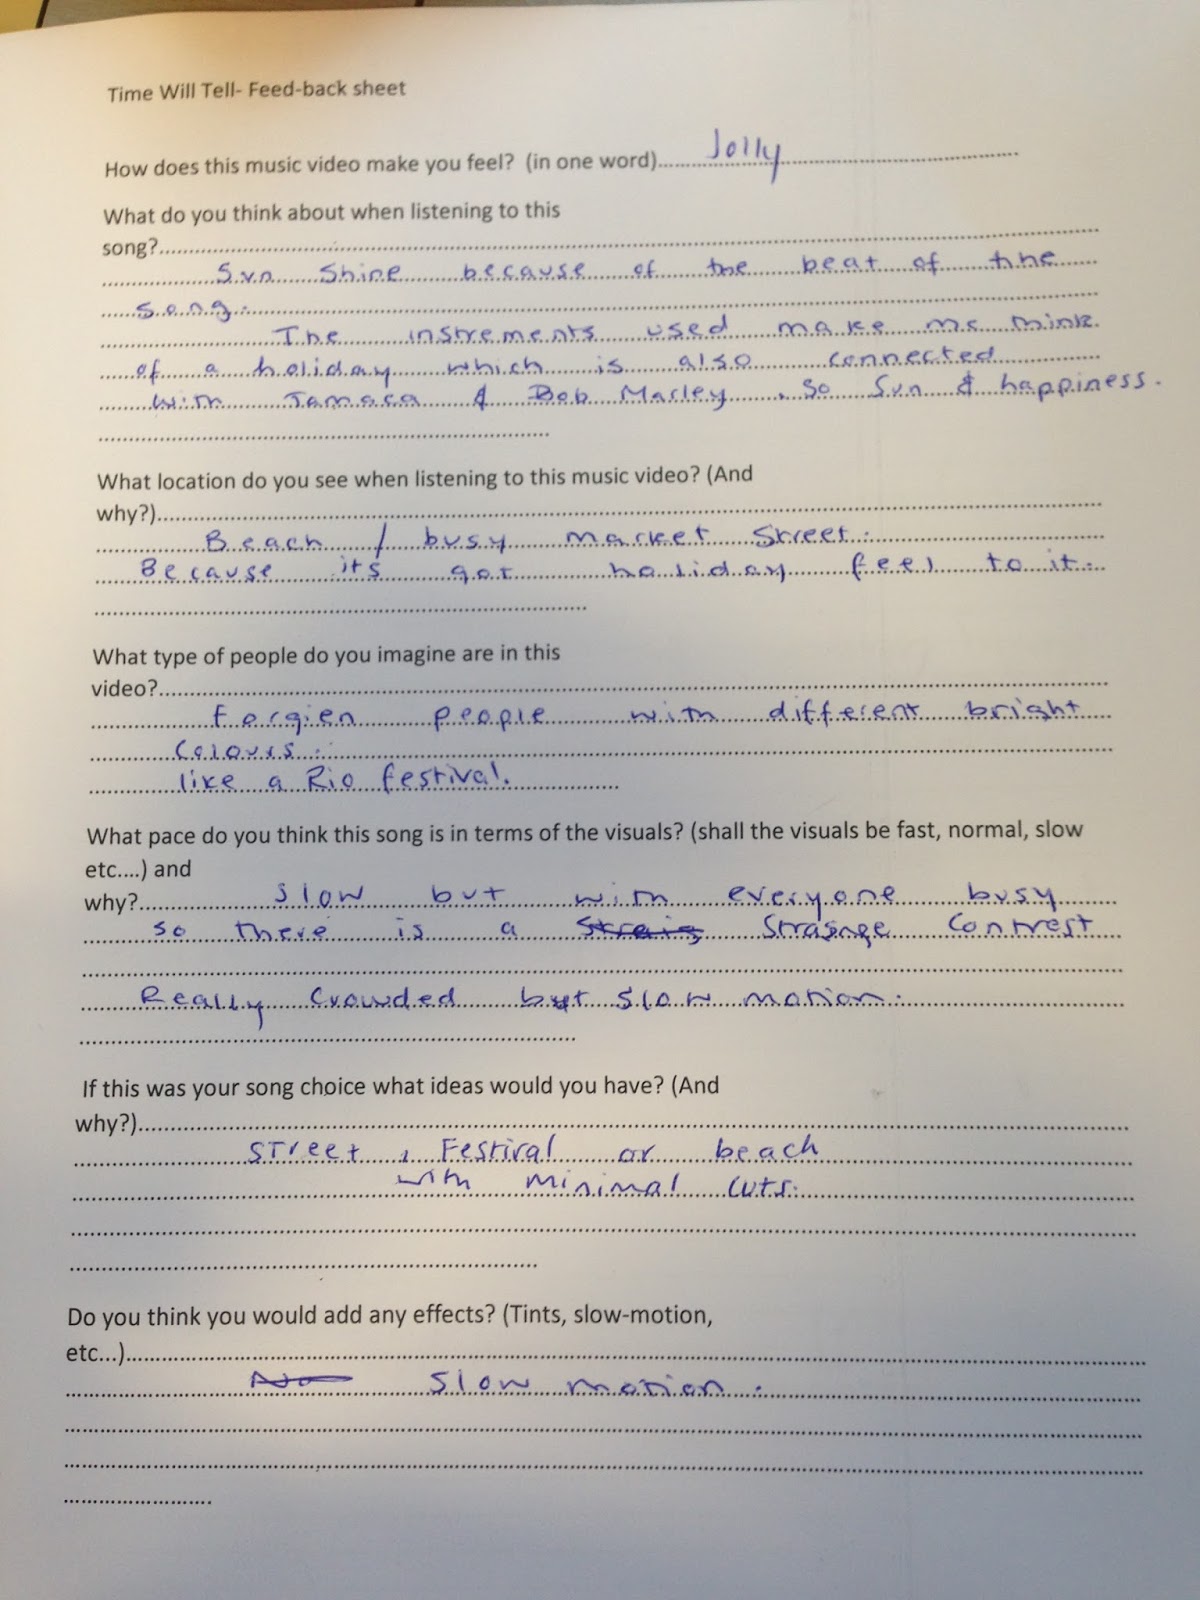 Time Will Tell- Feed-back sheet
How does this music video make you feel? (in one word)..........Jolly..........
What do you think about when listening to this
song?..........
Sun Shine because of the beat of the
song.
The instrements used make me think
of a holiday which is also connected
with Jamaca & Bob Marley. So Sun & happiness.
What location do you see when listening to this music video? (And
why?)..........
Beach / busy market Street.
Because its got holiday feel to it.
What type of people do you imagine are in this
video?..........
forgien people with different bright
Colours.
like a Rio festival.
What pace do you think this song is in terms of the visuals? (shall the visuals be fast, normal, slow
etc....) and
why?.......... slow but with everyone busy
so there is a Strange Contrest
Really Crowded but slow motion.
If this was your song choice what ideas would you have? (And
why?)..........
Street, Festival or beach
with minimal cuts.
Do you think you would add any effects? (Tints, slow-motion,
etc...)..........
No slow motion.